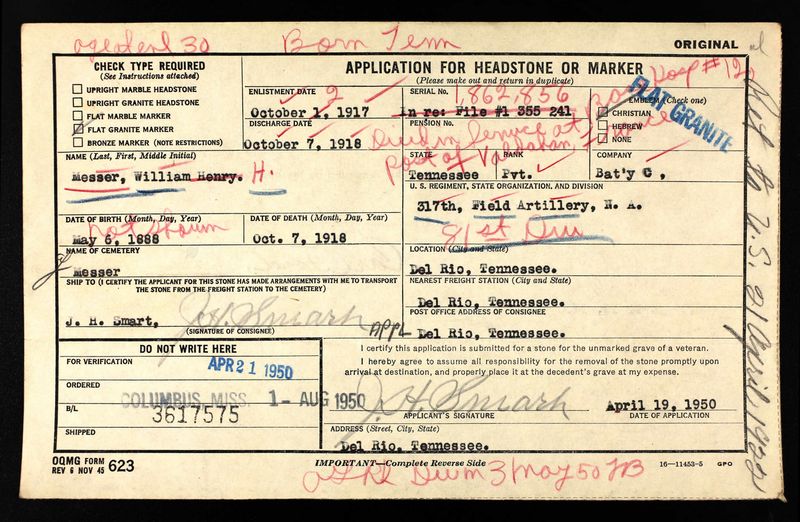 age at enl 30 Born Tenn
ORIGINAL
CHECK TYPE REQUIRED
(See Instructions attached)
UPRIGHT MARBLE HEADSTONE
UPRIGHT GRANITE HEADSTONE
FLAT MARBLE MARKER
FLAT GRANITE MARKER
BRONZE MARKER (NOTE RESTRICTIONS)
APPLICATION FOR HEADSTONE OR MARKER
(Please make out and return in duplicate)
ENLISTMENT DATE 2
October 1, 1917
DISCHARGE DATE
October 7, 1918
SERIAL No. 1,862,856
In re: File #1 355 241
PENSION No.
Died in Service at
port of
Hosp #12
EMBLEM (Check one)
CHRISTIAN
HEBREW
NONE
FLAT GRANITE
NAME (Last, First, Middle Initial)
Messer, William Henry. H.
STATE
Tennessee
RANK
Pvt.
COMPANY
Bat'y C,
U. S. REGIMENT, STATE ORGANIZATION, AND DIVISION
317th, Field Artillery, N. A.
81st Div
DATE OF BIRTH (Month, Day, Year)
not shown
May 6, 1888
DATE OF DEATH (Month, Day, Year)
Oct. 7, 1918
NAME OF CEMETERY
Messer
LOCATION (City and State)
Del Rio, Tennessee.
SHIP TO (I CERTIFY THE APPLICANT FOR THIS STONE HAS MADE ARRANGEMENTS WITH ME TO TRANSPORT
THE STONE FROM THE FREIGHT STATION TO THE CEMETERY)
NEAREST FREIGHT STATION (City and State)
Del Rio, Tennessee.
J. H. Smart, J. H. Smart
(SIGNATURE OF CONSIGNEE)
APPL
POST OFFICE ADDRESS OF CONSIGNEE
Del Rio, Tennessee.
DO NOT WRITE HERE
FOR VERIFICATION
APR 21 1950
ORDERED
COLUMBUS, MISS. 1 - AUG 1950
B/L
3617575
SHIPPED
I certify this application is submitted for a stone for the unmarked grave of a veteran.
I hereby agree to assume all responsibility for the removal of the stone promptly upon
arrival at destination, and properly place it at the decedent's grave at my expense.
J. H. Smart
APPLICANT'S SIGNATURE
April 19, 1950
DATE OF APPLICATION
ADDRESS (Street, City, State)
Del Rio, Tennessee.
OQMG FORM
REV 6 NOV 45 623
IMPORTANT—Complete Reverse Side
16—11453-5 GPO
3 May 50
to U.S. 21 April 1922